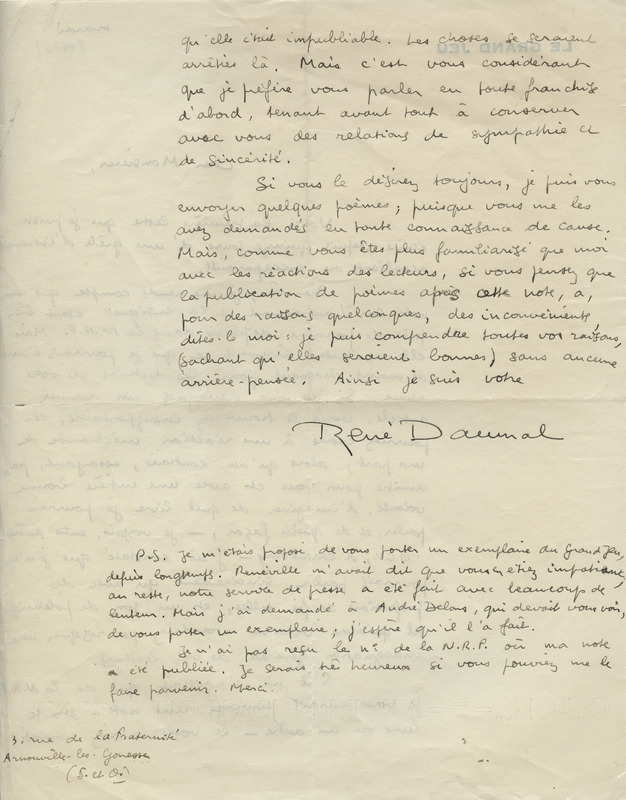 qu'elle était impubliable. Les choses se seraient
arrêtées là. Mais c'est vous considérant
que je préfère vous parler en toute franchise
d'abord, tenant avant tout à conserver
avec vous des relations de sympathie et
de sincérité.
Si vous le désirez toujours, je puis vous
envoyer quelques poèmes ; puisque vous me les
avez demandés en toute connaissance de cause.
Mais, comme vous êtes plus familiarisé que moi
avec les réactions des lecteurs, si vous pensez que
la publication de poèmes après cette note, a,
pour des raisons quelconques, des inconvénients
dites-le moi : je puis comprendre toutes vos raisons,
(sachant qu'elles seraient bonnes) sans aucune
arrière-pensée. Ainsi je suis votre
René Daumal
P.S. Je m'étais proposé de vous porter un exemplaire du Grand Jeu,
depuis longtemps. Renéville m'avait dit que vous en étiez impatient,
au reste, notre service de presse a été fait avec beaucoup de
lenteur. Mais j'ai demandé à André Delons, qui devait vous voir,
de vous porter un exemplaire ; j'espère qu'il l'a fait.
Je n'ai pas reçu le nº de la N.R.F. où ma note
a été publiée. Je serais très heureux si vous pouvez me le
faire parvenir. Merci.
3. rue de la Fraternité
Arnouville-les-Gonesse
(S. et O.)